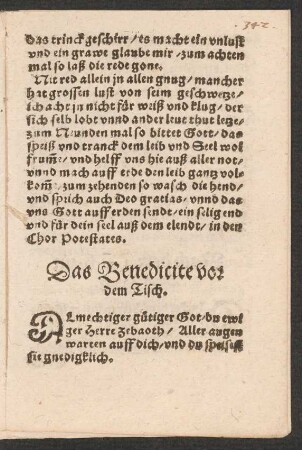 342
das trinckgeschirr / es macht ein vnlust
vnd ein grawe glaube mir / zum achten
mal so laß die rede gone.
Nit red allein jn allen gnug / mancher
hat grossen lust von seim geschwetze /
ich acht jn nicht für wiß vnd klug / der
sich selb lobt vnnd ander leut thut letze /
zum Neunden mal so bittet Gott / das
speiß vnd tranck dem leib vnd Seel wol
frum̃e / vnd helff vns hie auß aller not /
vnnd mach auff erde den leib gantz vol-
kom̃e / zum zehenden so wasch die hend /
vnd sprich auch Deo gratias / vnnd das
vns Gott auff erden sendt / ein selig end
vnd für dein seel auß dem elendt / in den
Chor Potestates.
Das Benedicite vor
dem Tisch.
ALmechtiger gütiger Got / du ewi
ger Herre Zebaoth / Aller augen
warten auff dich / vnd du speisest
sie gnedigklich.